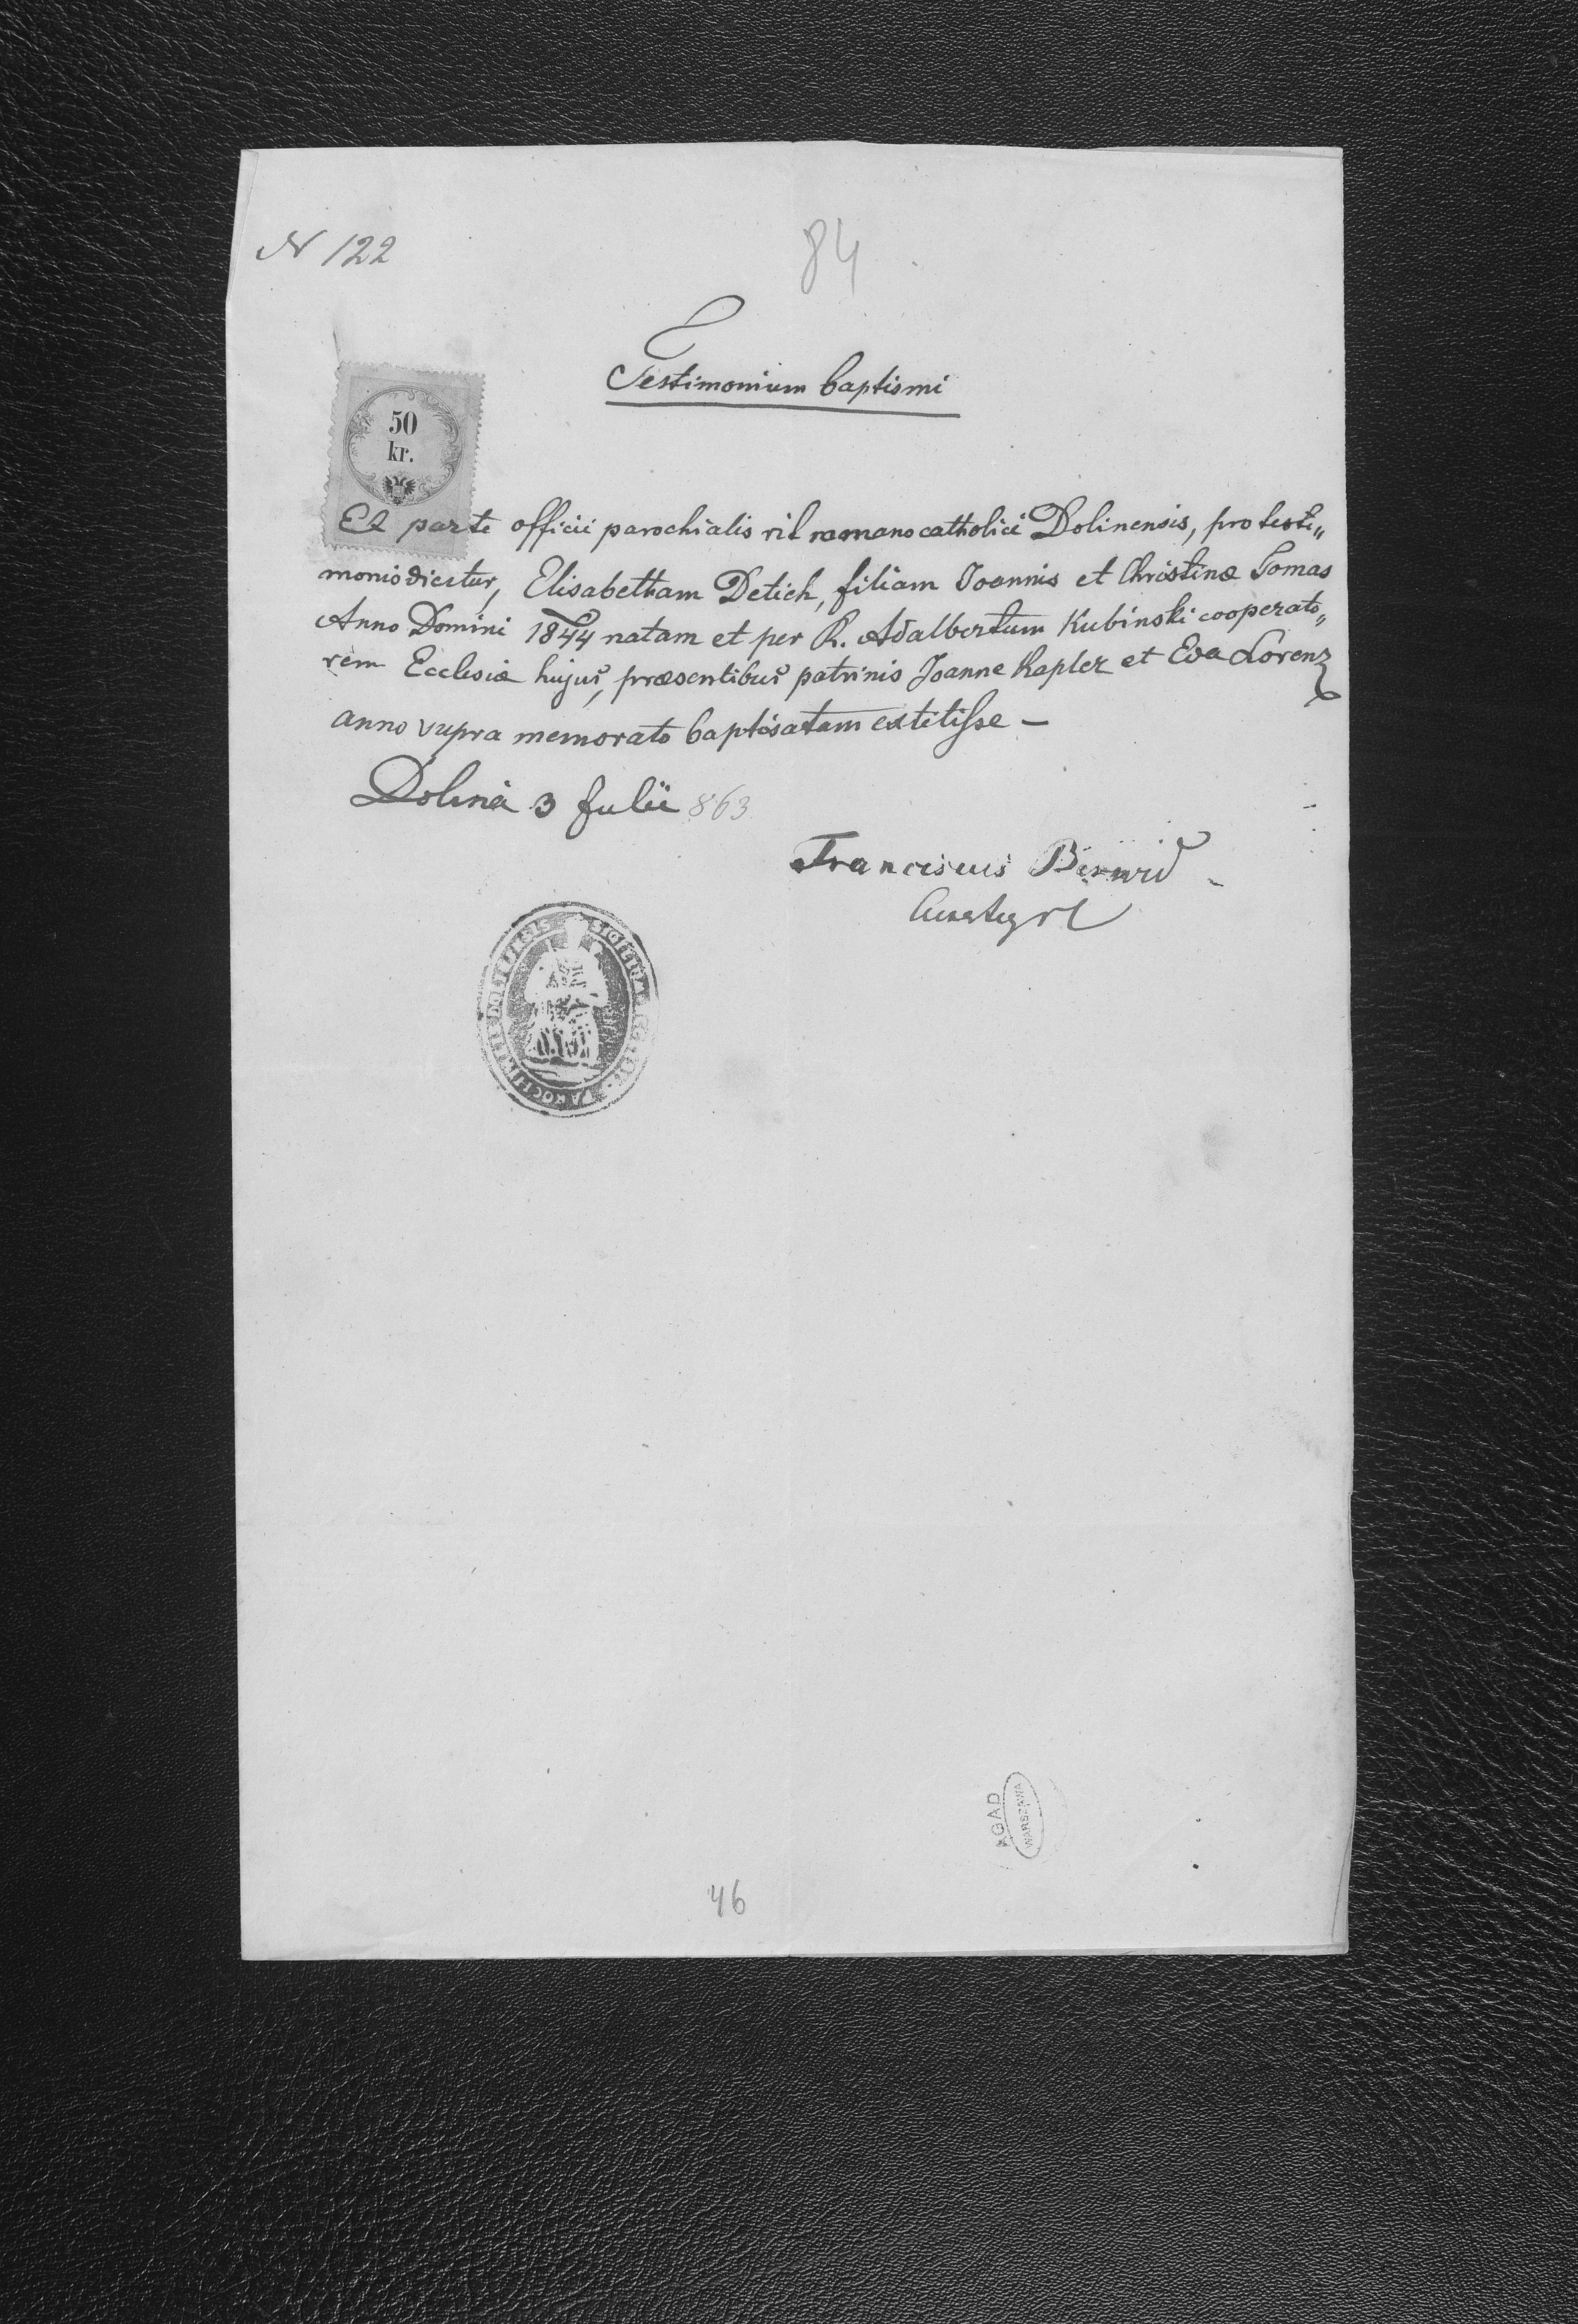 N 122
84
Testimonium baptismi
50
kr.
Ex parte officii parochialis rit romano catholici Dolinensis, pro testi„
monio dicitur, Elisabetham Detich, filiam Joannis et Christinæ Tomas
Anno Domini 1844 natam et per R. Adalbertum Kubinski cooperato„
rem Ecclesiæ hujus, præsentibus patrinis Joanne Kapler et Eva Lorenz
anno supra memorato baptisatam extitisse —
Dolina 3 Julii 863
Franciscus
AGAD
WARSZAWA
46